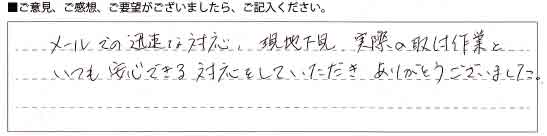 ■ご意見、ご感想、ご要望がございましたら、ご記入ください。
メールでの迅速な対応、現地下見、実際の取付作業と
いつも安心できる対応をしていただきありがとうございました。